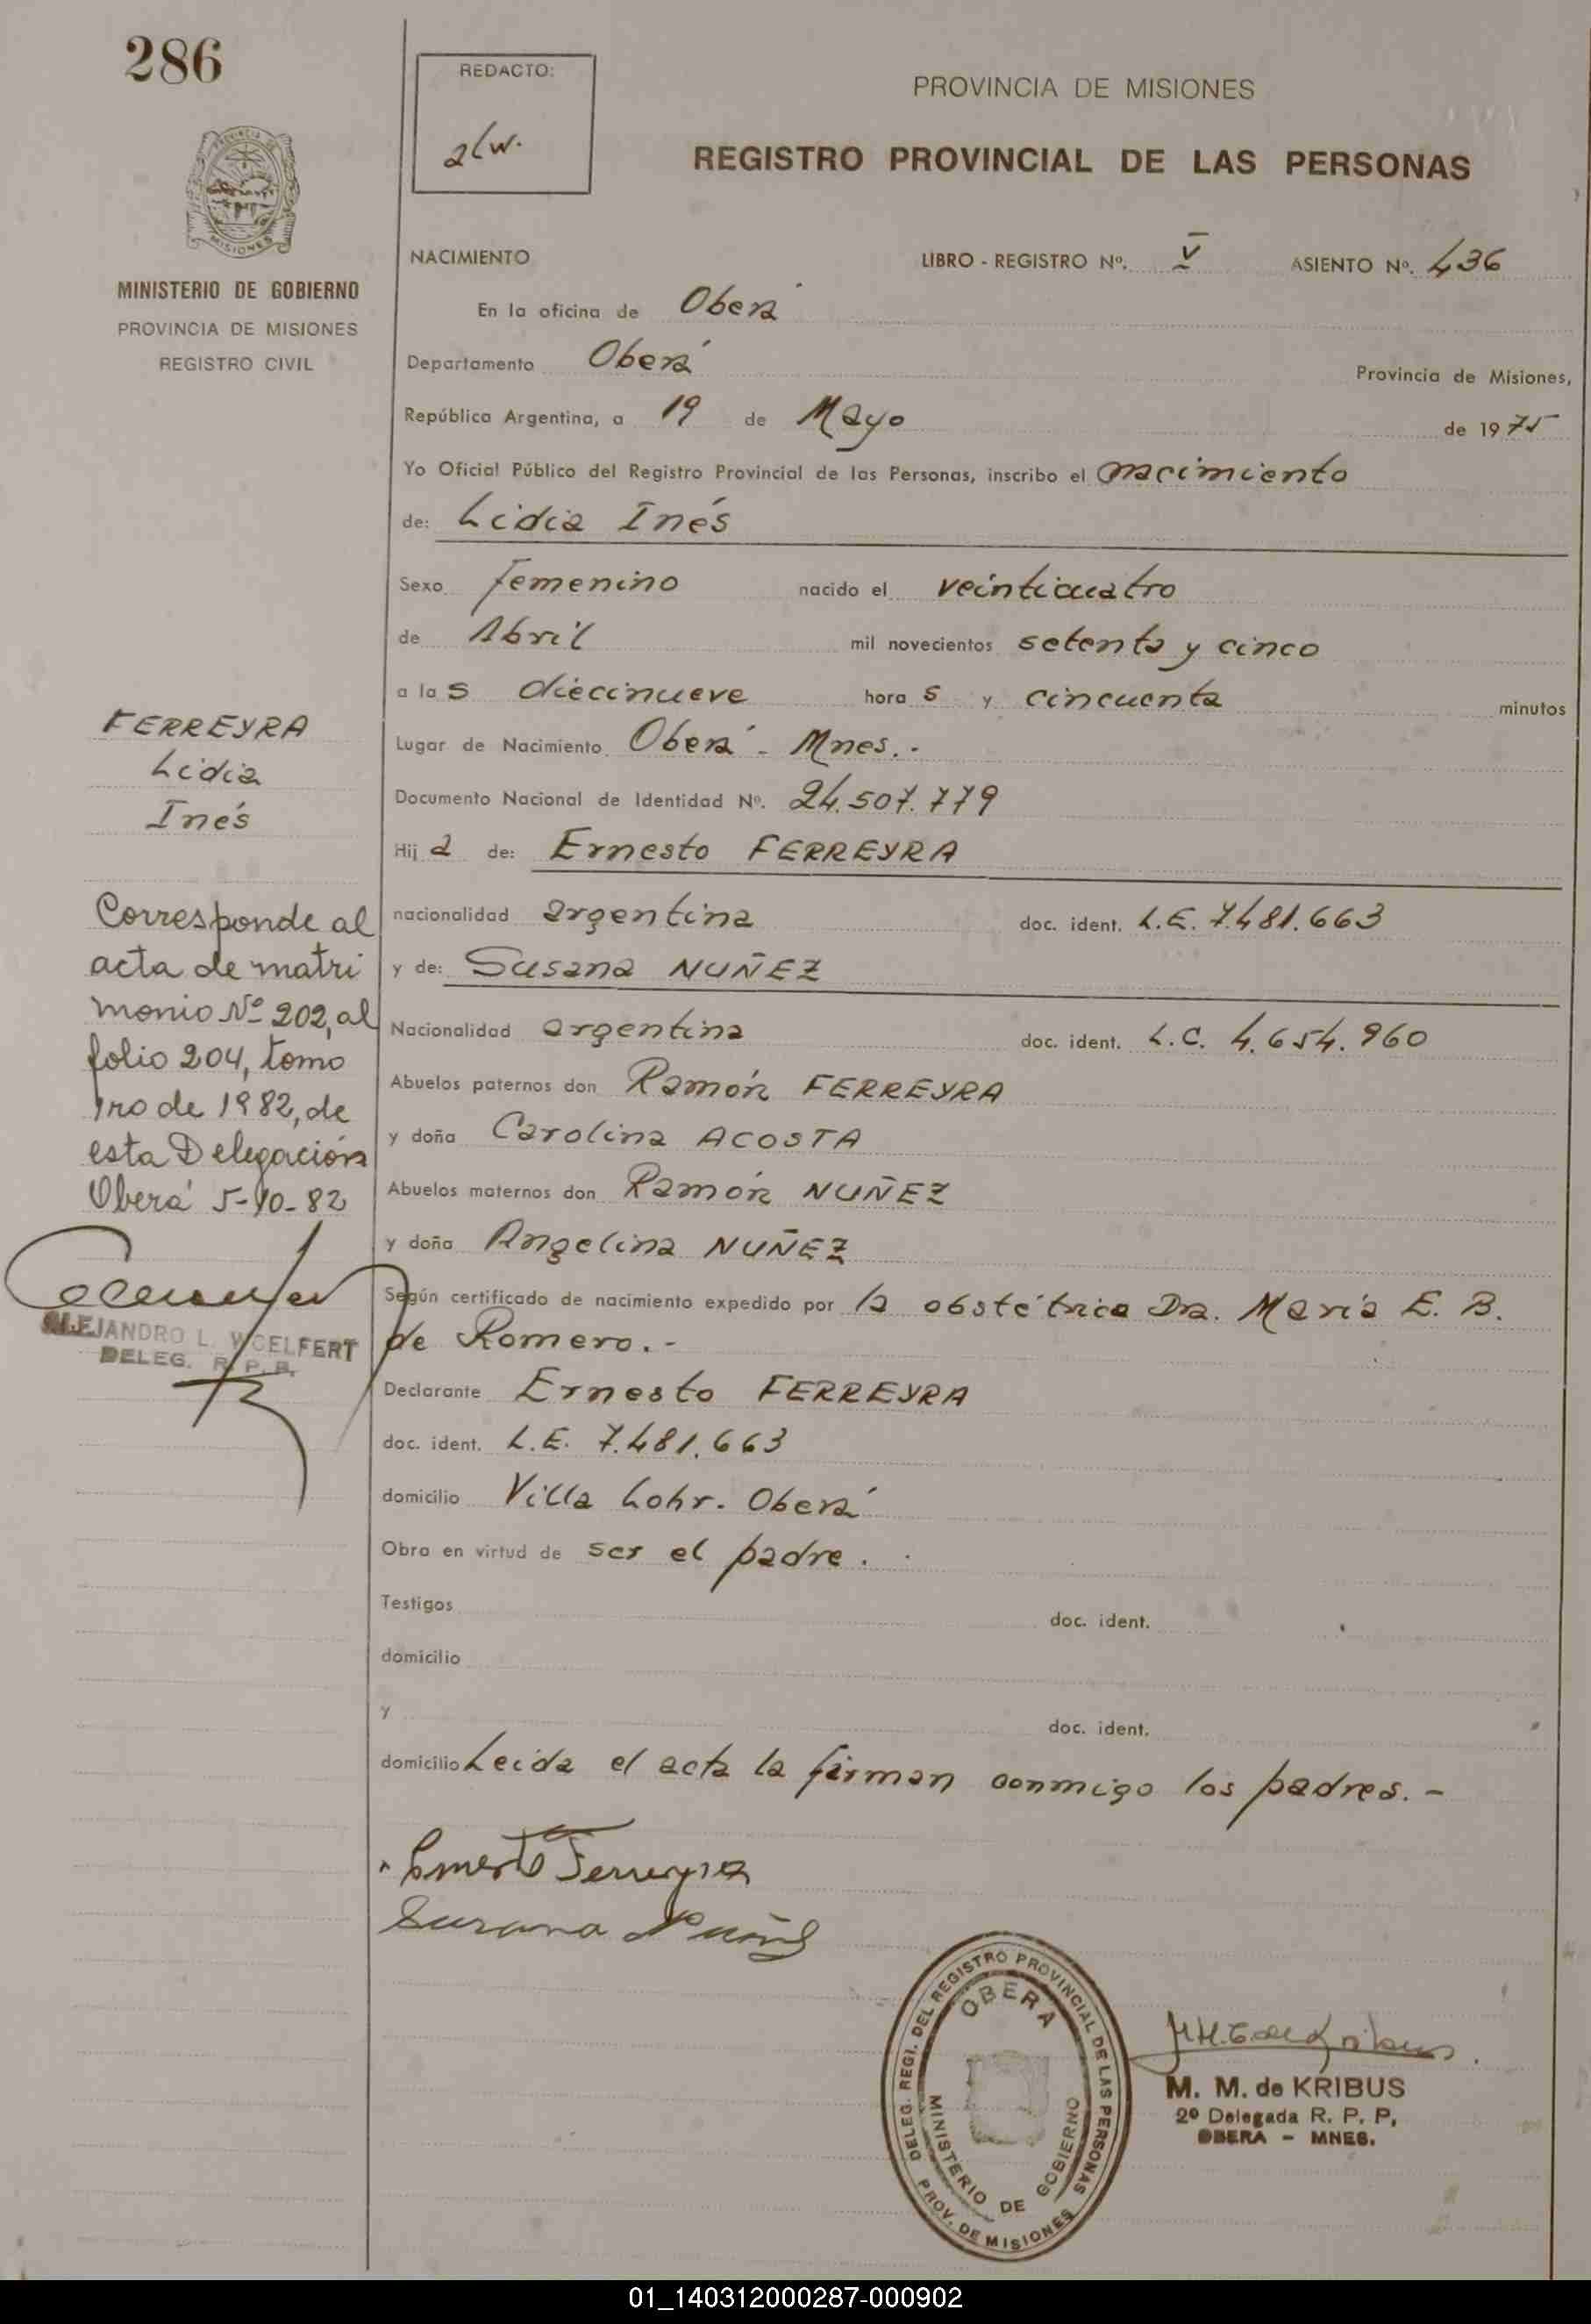 286
REDACTO:
alw.
PROVINCIA DE MISIONES
REGISTRO PROVINCIAL DE LAS PERSONAS
PROVINCIA DE
MISIONES
MINISTERIO DE GOBIERNO
PROVINCIA DE MISIONES
REGISTRO CIVIL
NACIMIENTO LIBRO - REGISTRO Nº. V ASIENTO Nº. 436
En la oficina de Oberá
Departamento Oberá Provincia de Misiones,
República Argentina, a 19 de Mayo de 1975
Yo Oficial Público del Registro Provincial de las Personas, inscribo el nacimiento
de: Lidia Inés
Sexo femenino nacido el veinticuatro
de Abril mil novecientos setenta y cinco
a las diecinueve horas y cincuenta minutos
Lugar de Nacimiento Oberá - Mnes.-
Documento Nacional de Identidad Nº. 24.507.779
Hija de: Ernesto FERREYRA
nacionalidad argentina doc. ident. L.E. 7.481.663
y de: Susana NUÑEZ
Nacionalidad argentina doc. ident. L.C. 4.654.960
Abuelos paternos don Ramón FERREYRA
y doña Carolina ACOSTA
Abuelos maternos don Ramón NUÑEZ
y doña Angelina NUÑEZ
Según certificado de nacimiento expedido por la obstétrica Dra. María E. B.
de Romero.-
Declarante Ernesto FERREYRA
doc. ident. L.E. 7.481.663
domicilio Villa Lohr. Oberá
Obra en virtud de ser el padre.
Testigos doc. ident.
domicilio
y doc. ident.
domicilio Leida el acta la firman conmigo los padres.-
Ernesto Ferreyra
Susana Nuñez
FERREYRA
Lidia
Inés
Corresponde al
acta de matri
monio Nº 202, al
folio 204, tomo
1ro de 1982, de
esta Delegación
Oberá 5-10-82
ALEJANDRO L. WOELFERT
DELEG. R. P. P.
DELEG. REGI. DEL REGISTRO PROVINCIAL DE LAS PERSONAS
OBERA
MINISTERIO DE GOBIERNO
PROV. DE MISIONES
M. M. de KRIBUS
2º Delegada R. P. P.
OBERA - MNES.
01_140312000287-000902